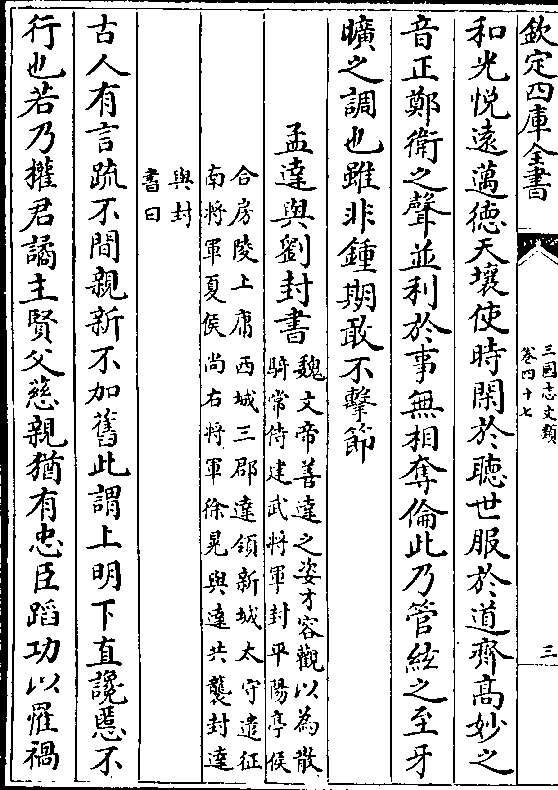 欽定四庫全書
三國志文類
卷四十七
三
和光悦遠邁德天壤使時閑於聽世服於道齊高妙之
音正鄭衛之聲並利於事無相奪倫此乃管絃之至牙
曠之調也雖非鍾期敢不擊節
孟達與劉封書
魏文帝善達之姿才容觀以為散
騎常侍建武將軍封平陽亭侯
合房陵上庸西城三郡達領新城太守遣征
南將軍夏侯尚右將軍徐晃與達共襲封達
與封
書曰
古人有言疏不間親新不加舊此謂上明下直讒慝不
行也若乃權君譎主賢父慈親猶有忠臣蹈功以罹禍